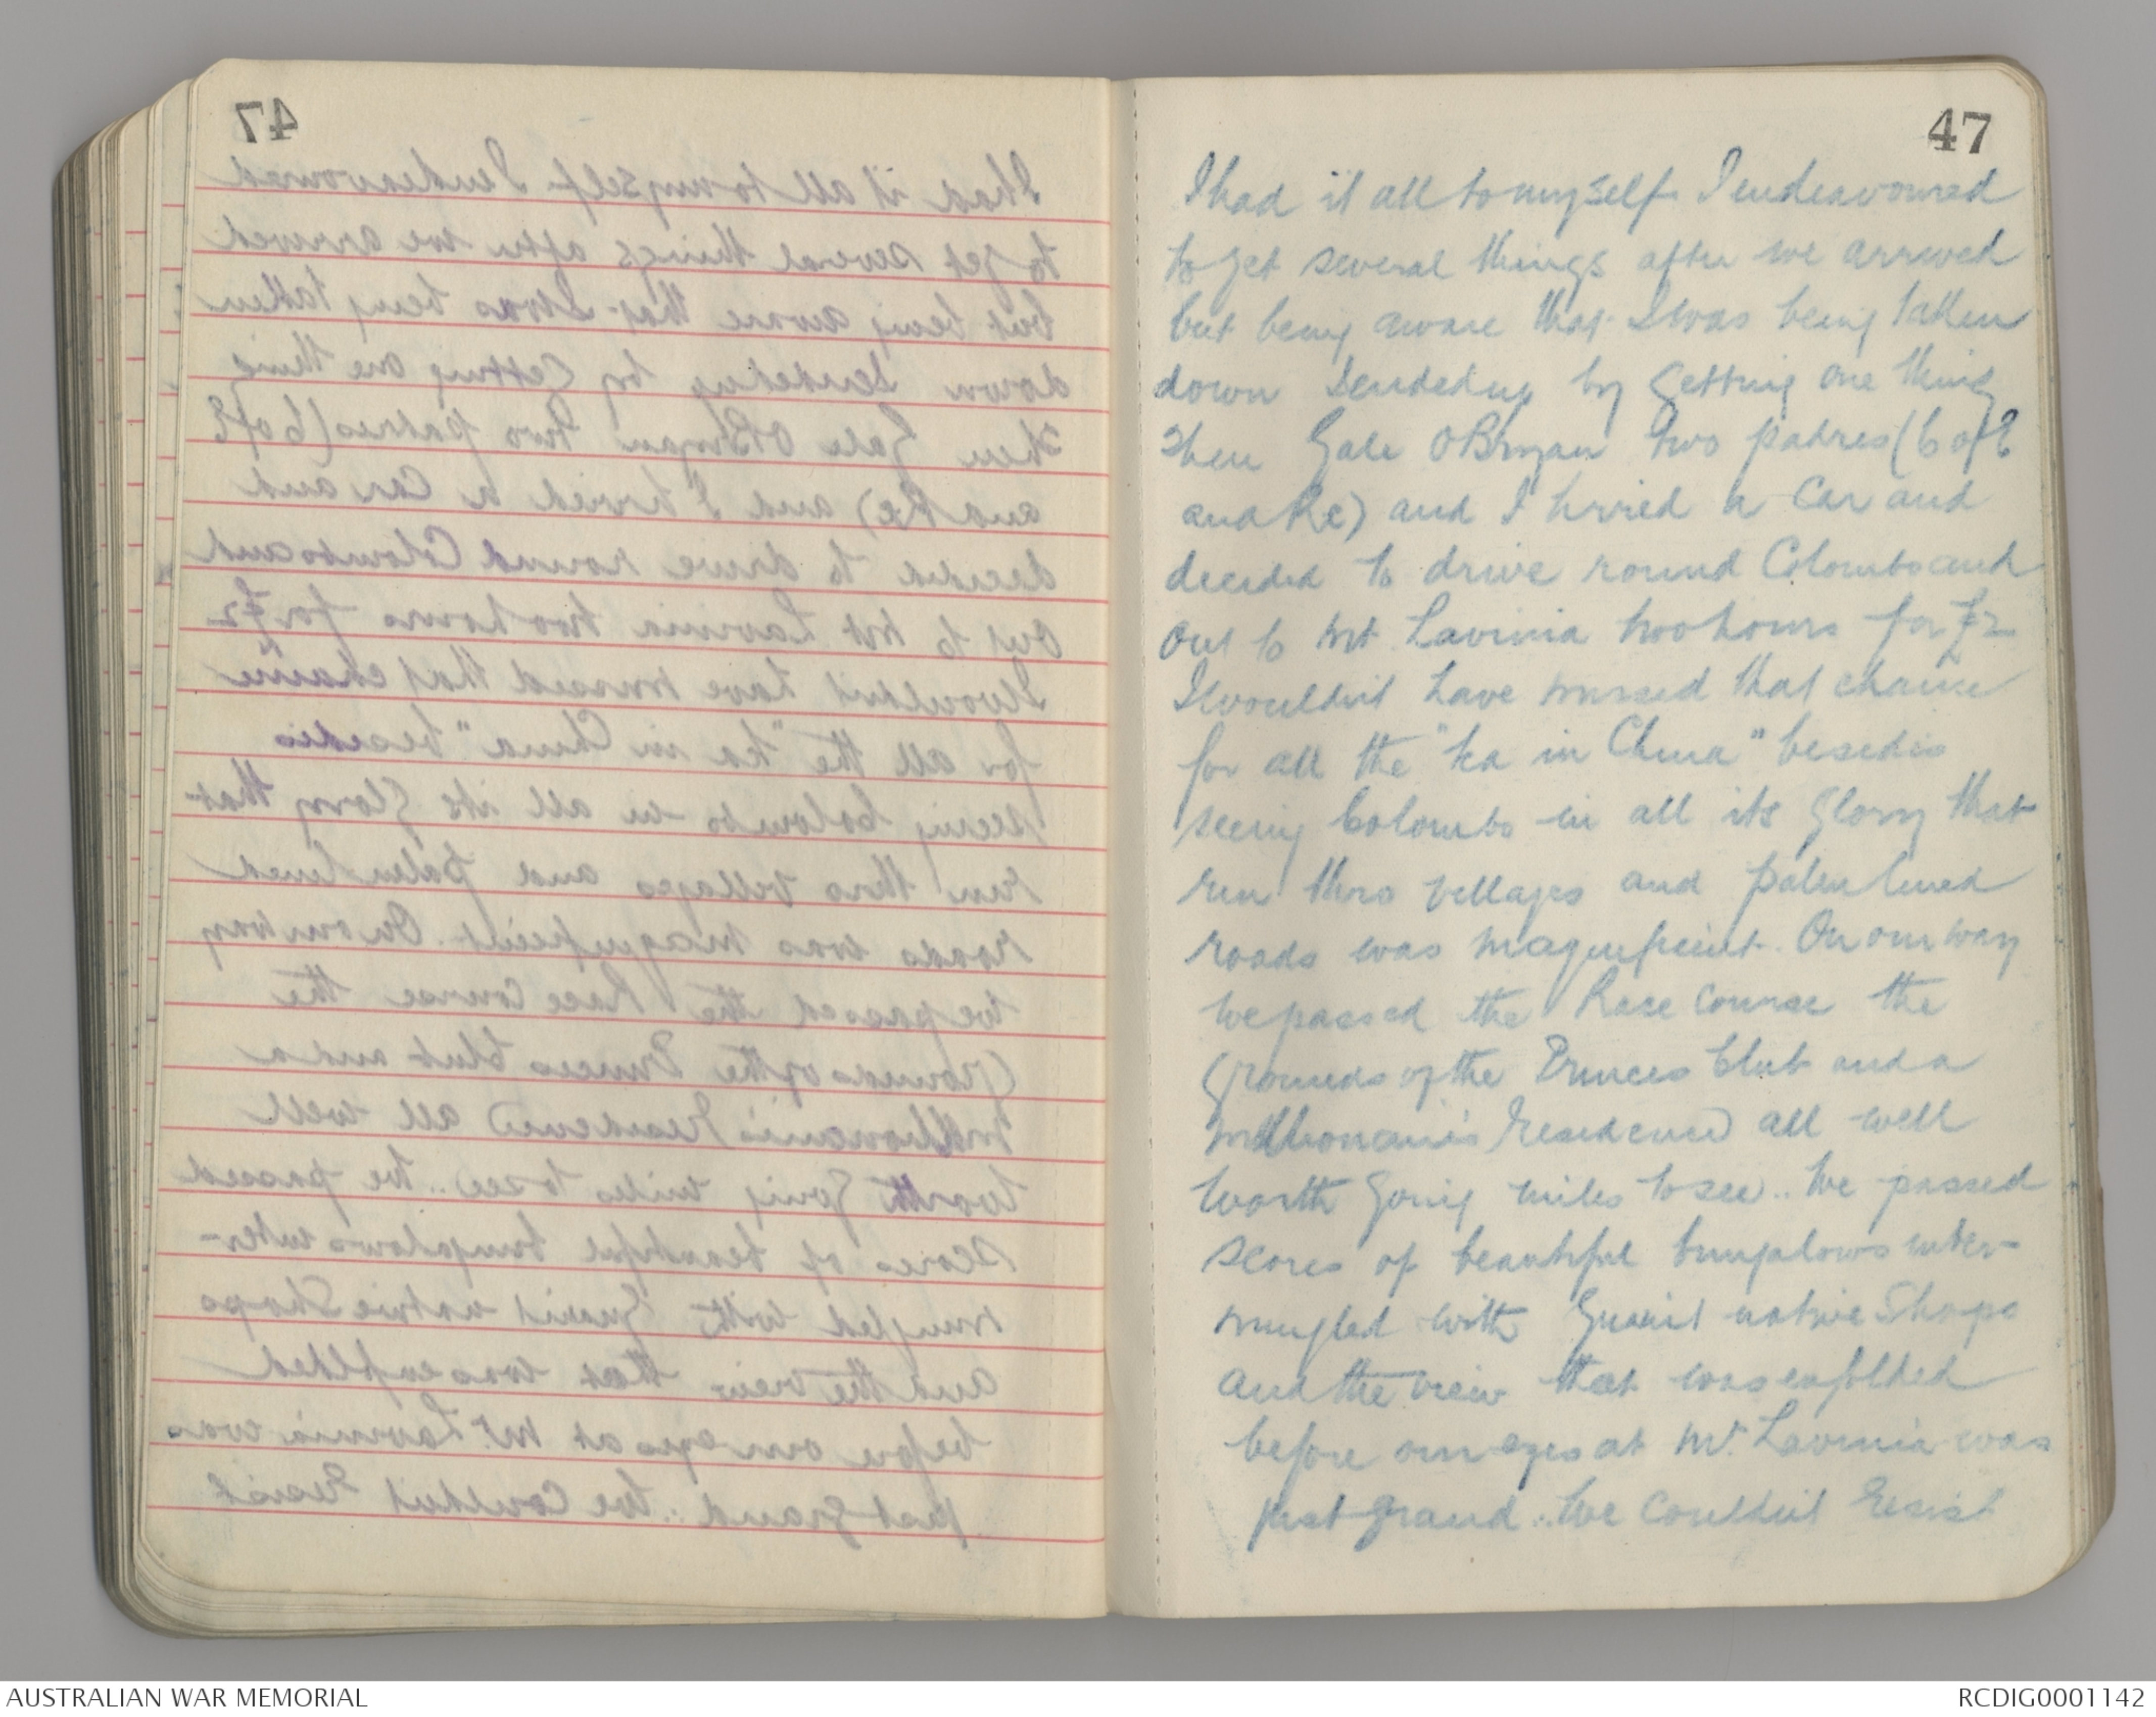 47
47
I had it all to myself. I endeavoured
to get several things after we arrived
but being aware that I was being taken
down ended up by getting one thing
Then Gale O'Bryan two padres (C of E
and RC) and I hired a car and
decided to drive round Colombo and
out to Mt Lavinia two hours for £2
I wouldn't have missed that chance
for all the "tea in China" besides
seeing Colombo in all its glory that
run thro villages and palm lined
roads was magnificent. On our way
we passed the Race Course the
grounds of the Princes Club and a
millionaires residence all well
worth going miles to see.. We passed
scores of beautiful bungalows inter-
mingled with quaint native shops
and the view that was enfolded
before our eyes at Mt. Lavinia was
just grand.. We couldn't resist
AUSTRALIAN WAR MEMORIAL
RCDIG0001142